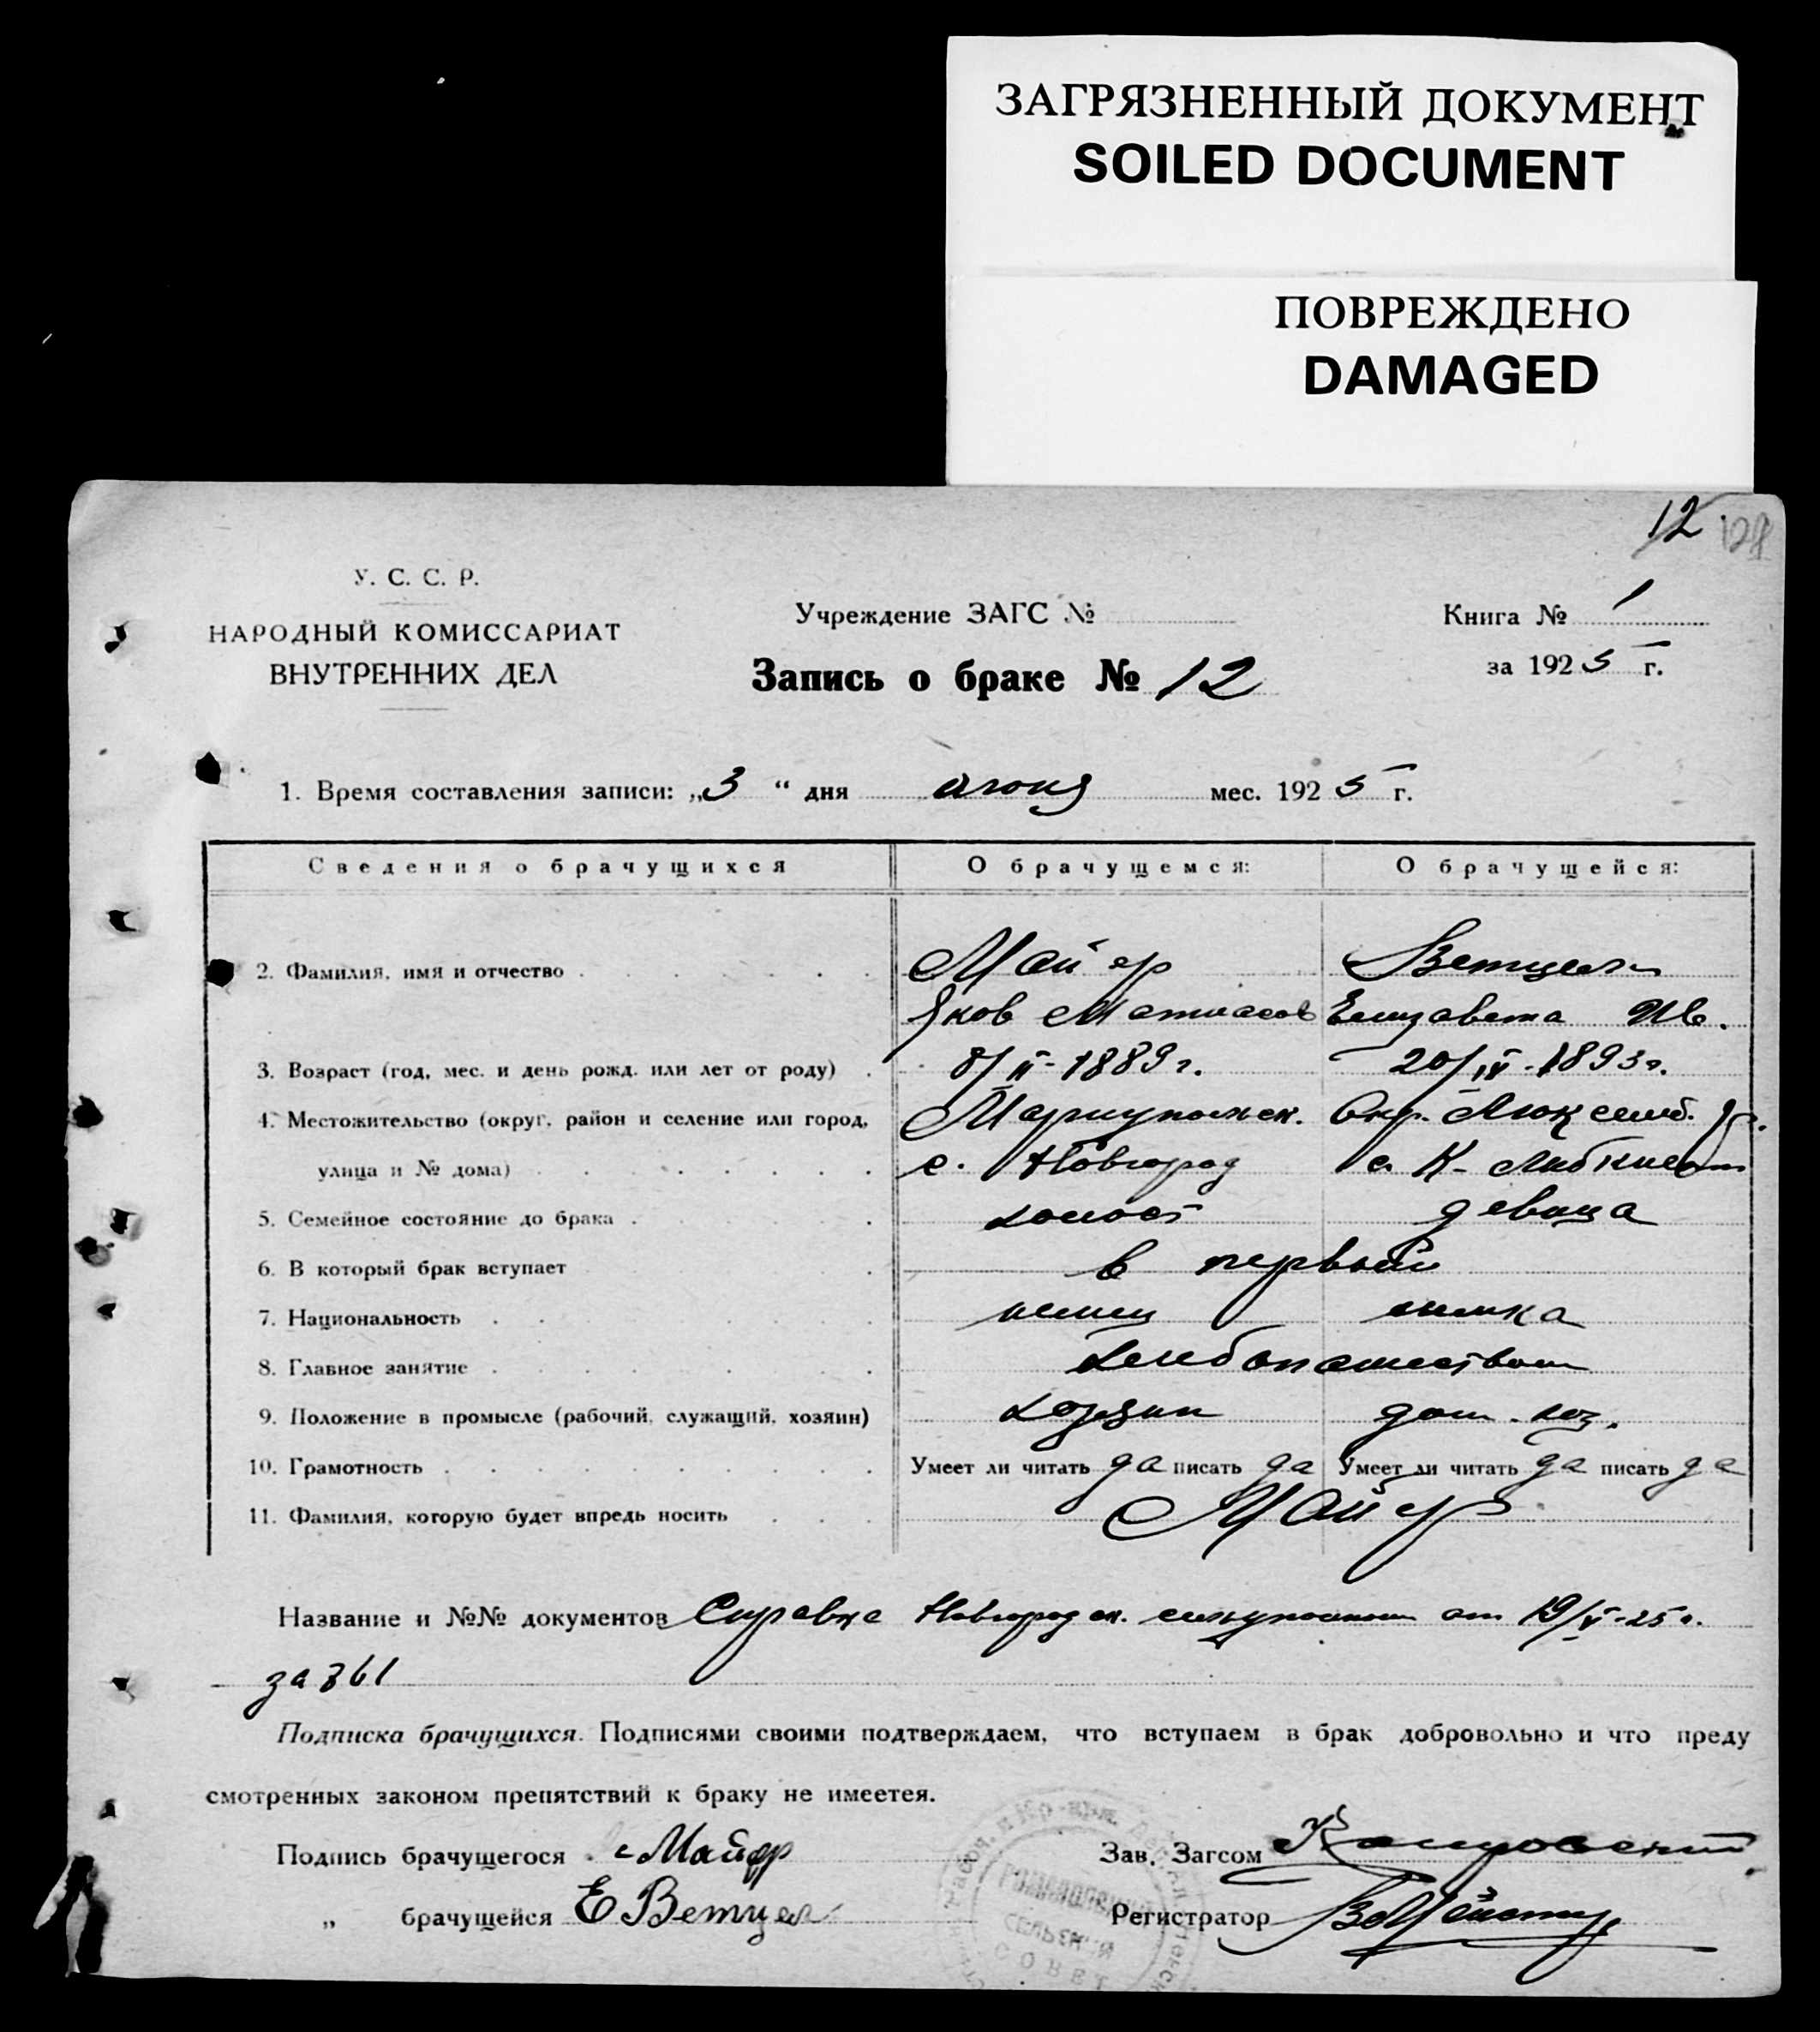 ЗАГРЯЗНЕННЫЙ ДОКУМЕНТ
SOILED DOCUMENT
ПОВРЕЖДЕНО
DAMAGED
12
У. С. С. Р.
НАРОДНЫЙ КОМИССАРИАТ
ВНУТРЕННИХ ДЕЛ
Учреждение ЗАГС №
Запись о браке № 12
Книга № 1
за 1925 г.
1. Время составления записи: „3 “ дня июня мес. 1925 г.
Сведения о брачущихся О брачущемся: О брачущейся:
2. Фамилия, имя и отчество Майер Ветцель
Яков Матиасов Елизавета Ив.
3. Возраст (год, мес. и день рожд. или лет от роду) 8/II-1889 г. 20/IV-1893 г.
4. Местожительство (округ, район и селение или город, Мариупольск. Окр. Люксемб. р.
улица и № дома) с. Новгород с. К-Либкнехт
5. Семейное состояние до брака холост девица
6. В который брак вступает в первый
7. Национальность немец немка
8. Главное занятие хлебопашеством
9. Положение в промысле (рабочий, служащий, хозяин) хозяин дом. хоз.
10. Грамотность Умеет ли читать да писать да Умеет ли читать да писать да
11. Фамилия, которую будет впредь носить Майер
Название и №№ документов Справка Новгородск. от 19/V-25 г.
за 361
Подписка брачущихся. Подписями своими подтверждаем, что вступаем в брак добровольно и что преду
смотренных законом препятствий к браку не имеетея.
Подпись брачущегося Майер Зав. Загсом
„ брачущейся Е Ветцел Регистратор